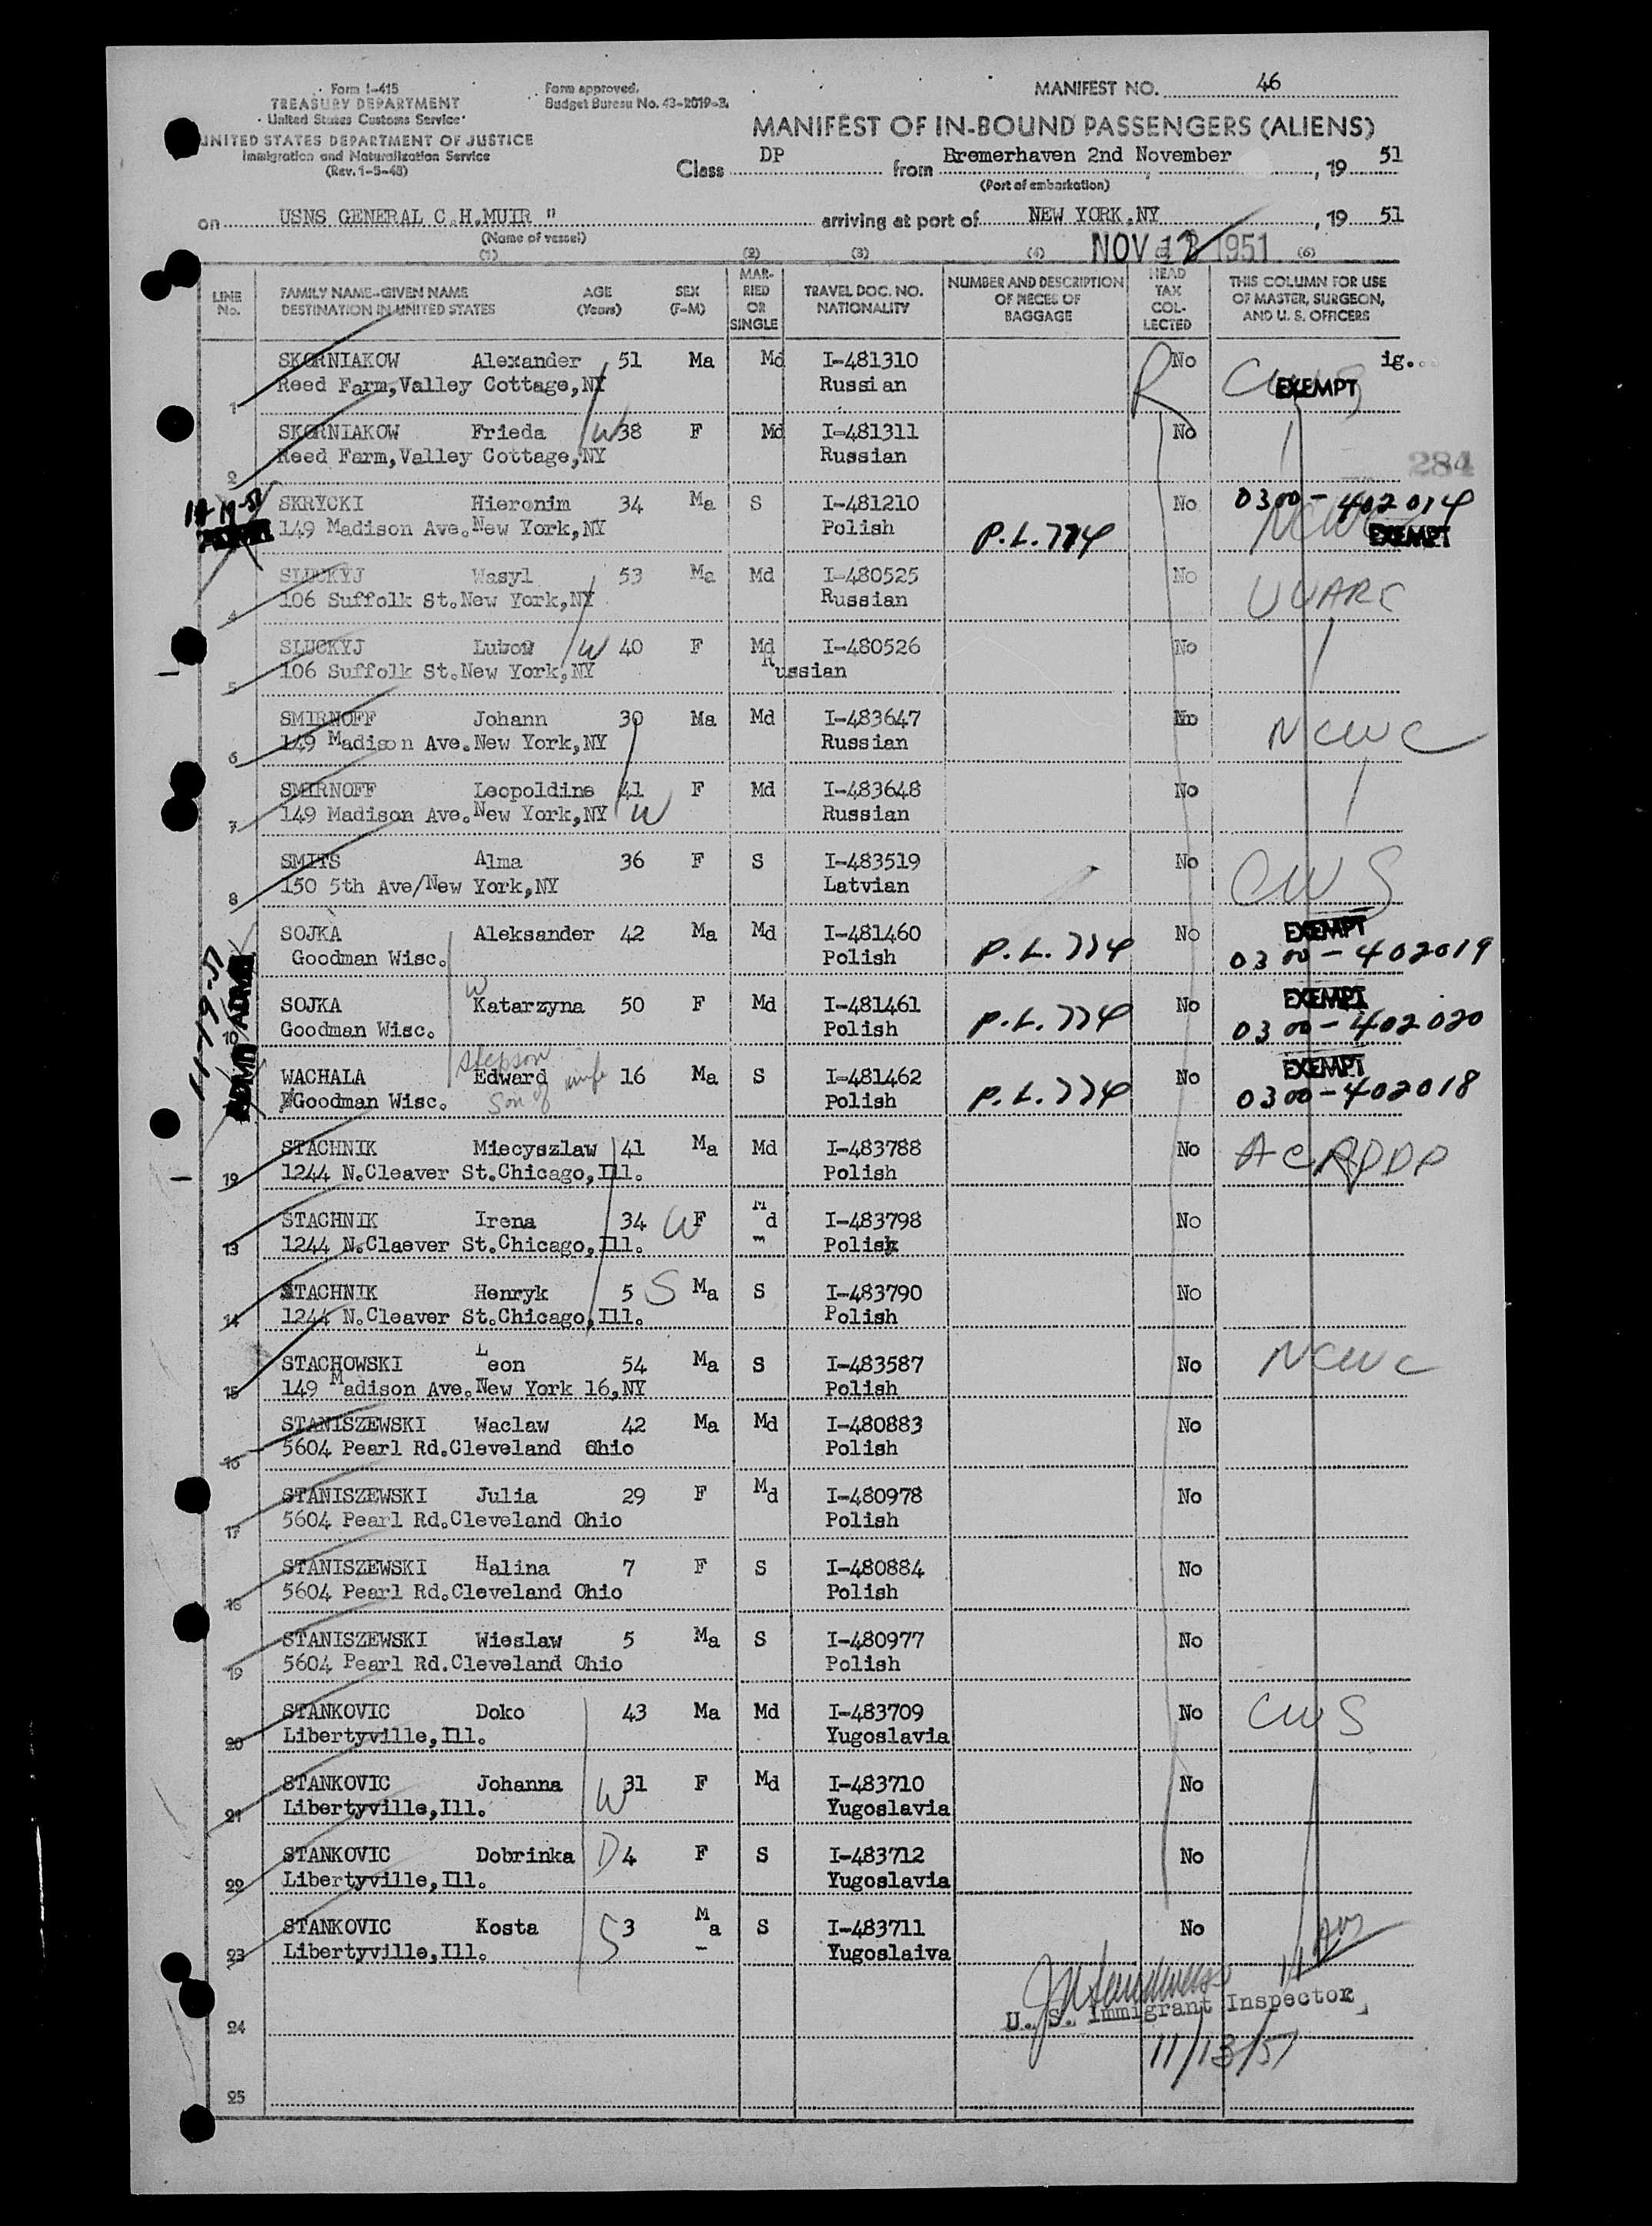 Form I-415
TREASURY DEPARTMENT
United States Customs Service
UNITED STATES DEPARTMENT OF JUSTICE
Immigration and Naturalization Service
(Rev. 1-5-48)
Form approved.
Budget Bureau No. 43-R019-2.
MANIFEST NO. 46
MANIFEST OF IN-BOUND PASSENGERS (ALIENS)
Class DP from Bremerhaven 2nd November, 19 51
(Port of embarkation)
on USNS GENERAL C.H.MUIR " arriving at port of NEW YORK.NY, 19 51
(Name of vessel)
NOV 1951
(1) (2) (3) (4) (6)
LINE No. FAMILY NAME-GIVEN NAME DESTINATION IN UNITED STATES AGE (Years) SEX (F-M) MARRIED OR SINGLE TRAVEL DOC. NO. NATIONALITY NUMBER AND DESCRIPTION OF PIECES OF BAGGAGE HEAD TAX COLLECTED THIS COLUMN FOR USE OF MASTER, SURGEON, AND U. S. OFFICERS
SKORNIAKOW Alexander 51 Ma Md I-481310 R No CWS ig.
1 Reed Farm,Valley Cottage,NY Russian EXEMPT
SKORNIAKOW Frieda W 38 F Md I-481311 No
2 Reed Farm,Valley Cottage,NY Russian 284
SKRYCKI Hieronim 34 Ma S I-481210 No 0300-402014
149 Madison Ave.New York,NY Polish P.L.774 NCWC EXEMPT
SLUCKYJ Wasyl 53 Ma Md I-480525 No UUARC
4 106 Suffolk St.New York,NY Russian
SLUCKYJ Lubow W 40 F Md I-480526 No
5 106 Suffolk St.New York,NY Russian
SMIRNOFF Johann 30 Ma Md I-483647 No NCWC
6 149 Madison Ave.New York,NY Russian
SMIRNOFF Leopoldine 41 F Md I-483648 No
7 149 Madison Ave.New York,NY W Russian
SMITS Alma 36 F S I-483519 No CWS
8 150 5th Ave/New York,NY Latvian
SOJKA Aleksander 42 Ma Md I-481460 No EXEMPT
Goodman Wisc. Polish P.L.774 0300-402019
SOJKA W Katarzyna 50 F Md I-481461 No EXEMPT
10 Goodman Wisc. Polish P.L.774 0300-402020
11-19-51 ADM
WACHALA stepson Edward 16 Ma S I-481462 No EXEMPT
Goodman Wisc. Son of wife Polish P.L.774 0300-402018
STACHNIK Miecyszlaw 41 Ma Md I-483788 No ACRDDP
12 1244 N.Cleaver St.Chicago,Ill. Polish
STACHNIK Irena 34 W F Md I-483798 No
13 1244 N.Claever St.Chicago,Ill. Polish
STACHNIK Henryk 5 S Ma S I-483790 No
14 1244 N.Cleaver St.Chicago,Ill. Polish
STACHOWSKI Leon 54 Ma S I-483587 No NCWC
15 149 Madison Ave.New York 16,NY Polish
STANISZEWSKI Waclaw 42 Ma Md I-480883 No
16 5604 Pearl Rd.Cleveland Ohio Polish
STANISZEWSKI Julia 29 F Md I-480978 No
17 5604 Pearl Rd.Cleveland Ohio Polish
STANISZEWSKI Halina 7 F S I-480884 No
18 5604 Pearl Rd.Cleveland Ohio Polish
STANISZEWSKI Wieslaw 5 Ma S I-480977 No
19 5604 Pearl Rd.Cleveland Ohio Polish
STANKOVIC Doko 43 Ma Md I-483709 No CWS
20 Libertyville,Ill. Yugoslavia
STANKOVIC Johanna W 31 F Md I-483710 No
21 Libertyville,Ill. Yugoslavia
STANKOVIC Dobrinka D 4 F S I-483712 No
22 Libertyville,Ill. Yugoslavia
STANKOVIC Kosta S 3 Ma S I-483711 No
23 Libertyville,Ill. Yugoslaiva
U. S. Immigrant Inspector
24
11/13/51
25